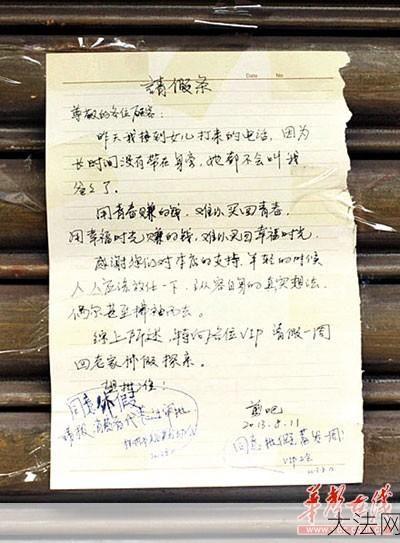 Date No.
請假条
尊敬的各位顾客:
昨天我接到女儿打来的电话,因为
长时间没有带在身旁,她都不会叫我
爸爸了。
用青春赚的钱,难以买回青春,
用幸福时光赚的钱,难以买回幸福时光。
感谢您们对本店的支持,年轻的时候
人人应该放任一下,从容自身的真实想法,
偶尔甚至拂袖而去。
综上所述,特向各位VIP 请假一周
回老家休假探亲。
望批准:
剪吧
2013.8.11
同意休假
请报消费者代表
同意批假
一周
VIP
华声在线
大法网